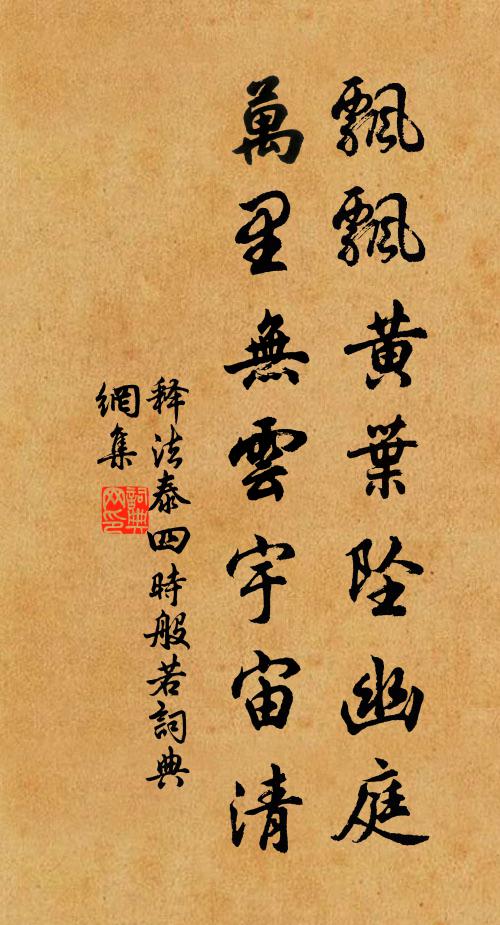 飄飄黃葉墜幽庭
萬里無雲宇宙清
释法泰四時般若詞典
網集
詞典
网印